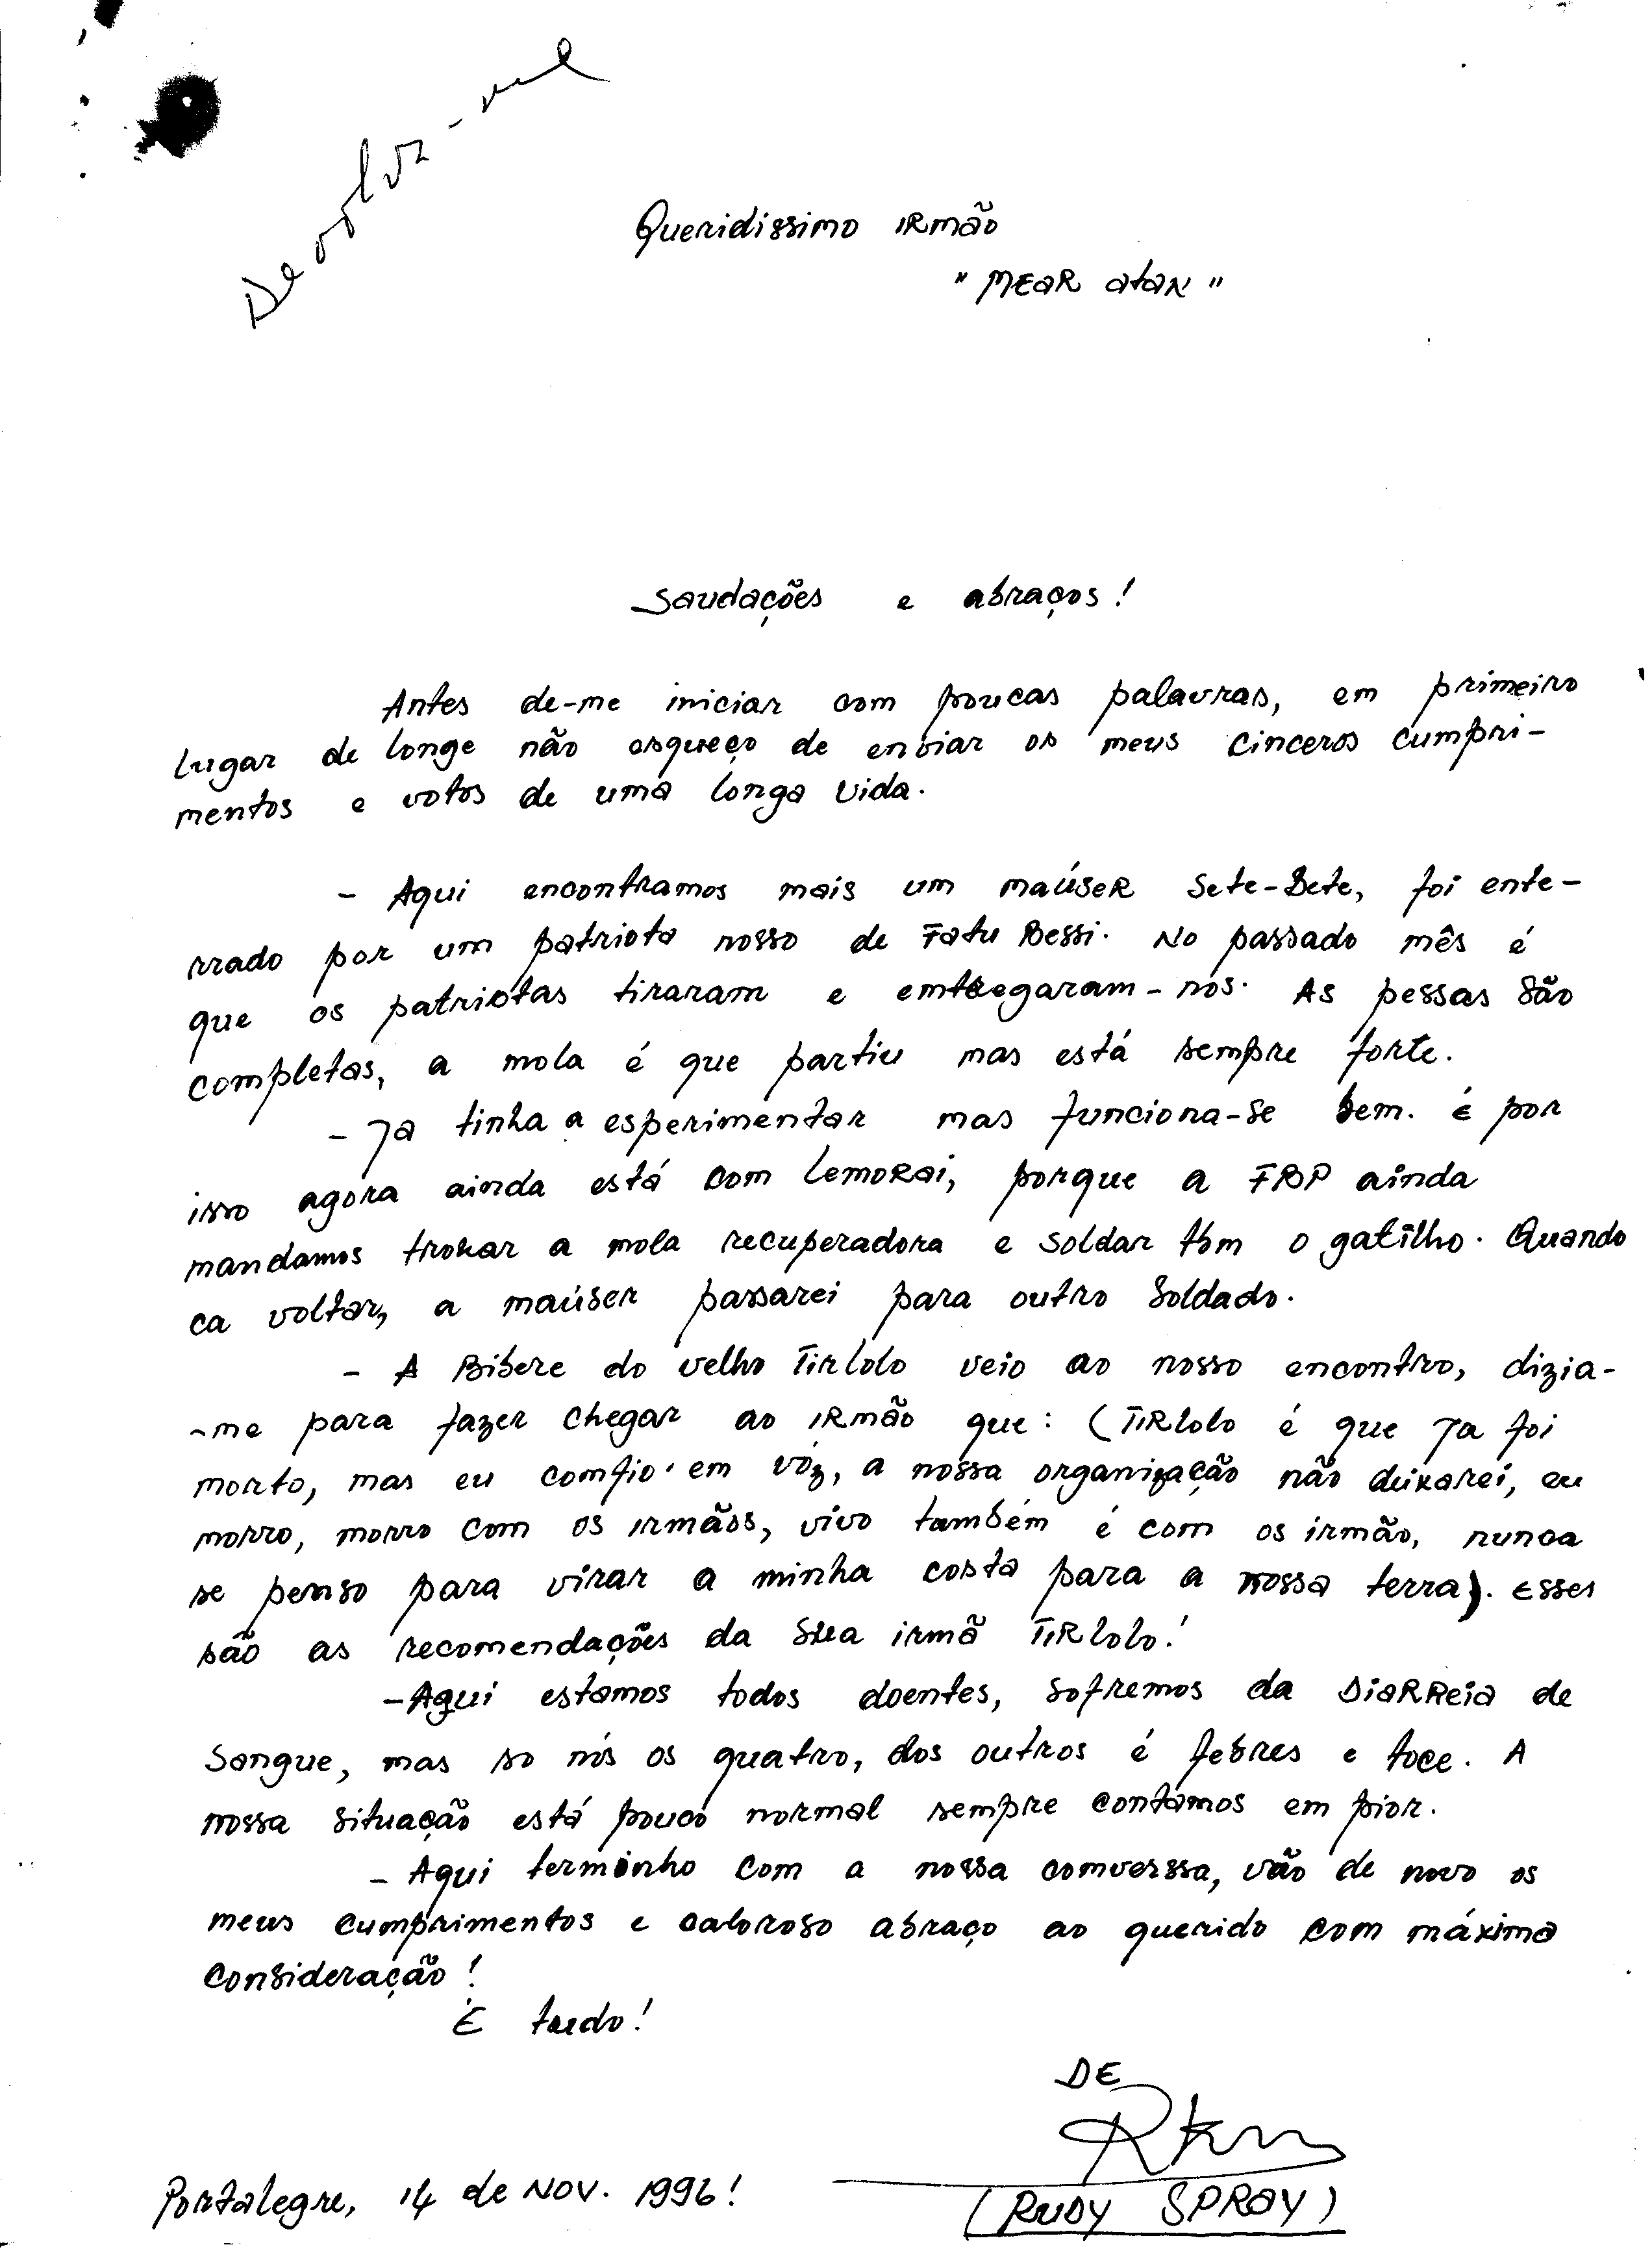 Devolva-me
Queridissimo IRmão
"MEAR atan"
Saudações e abraços!
Antes de-me iniciar com poucas palavras, em primeiro
lugar de longe não esqueço de enviar os meus cinceros cumpri-
mentos e votos de uma longa vida.
- Aqui encontramos mais um maúseR Sete-Sete, foi ente-
rrado por um patriota nosso de Fatu Bessi. No passado mês é
que os patriotas tiraram e emtregaram-nos. As pessas são
completas, a mola é que partiu mas está sempre forte.
- Ja tinha a esperimentar mas funciona-se bem. É por
isso agora ainda está com LemoRai, porque a FBP ainda
mandamos trokar a mola recuperadora e soldar tbm o gatilho. Quando
ca voltar, a maúser passarei para outro soldado.
- A Bibere do velho Tirlolo veio ao nosso encontro, dizia-
-me para fazer chegar ao IRmão que: (TiRlolo é que Ja foi
morto, mas eu comfio em vóz, a nossa organização não deixarei, eu
morro, morro com os irmãos, vivo também é com os irmão, nunca
se penso para virar a minha costa para a nossa terra). Esses
são as recomendações da sua irmã TiRlolo!
-Aqui estamos todos doentes, sofremos da DiaRReia de
Sangue, mas so nós os quatro, dos outros é febres e toce. A
nossa situação está pouco normal sempre contamos em pior.
- Aqui terminho com a nossa comverssa, vão de novo os
meus cumprimentos e caloroso abraço ao querido com máxima
Consideração!
É tudo!
DE
(RUDY SPRAY)
Portalegre, 14 de NOV. 1996!